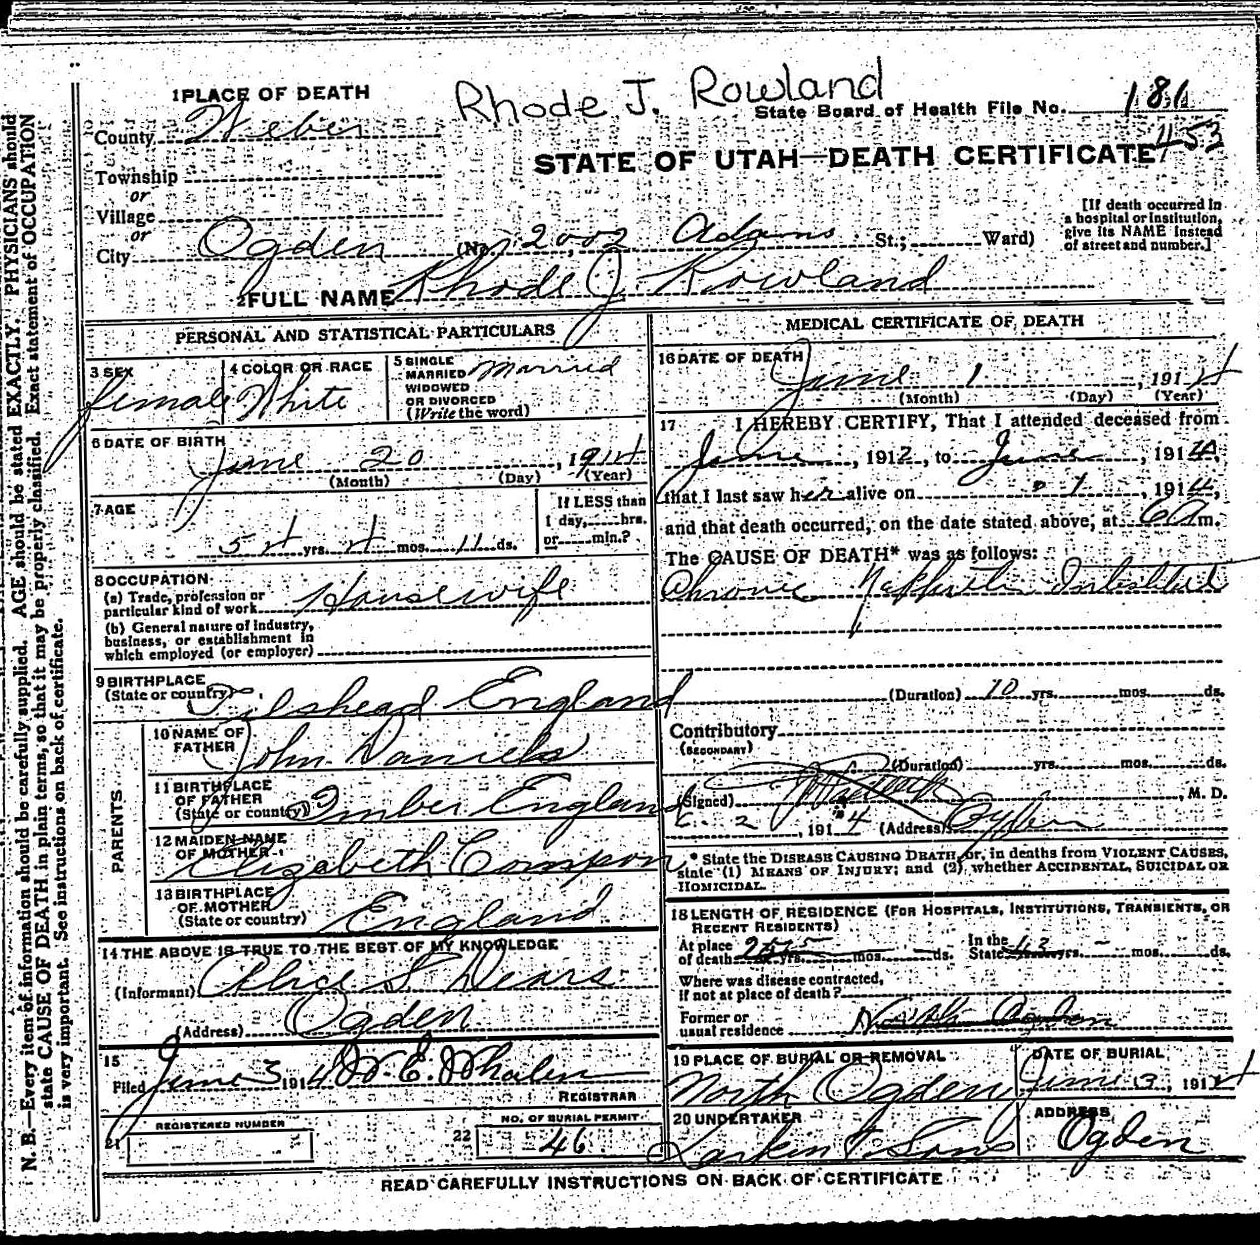 Rhode J. Rowland
1 PLACE OF DEATH
County Weber
State Board of Health File No. 181
453
STATE OF UTAH—DEATH CERTIFICATE
Township
or
Village
or
City Ogden (No. 2002 Adams St.; Ward)
[If death occurred in
a hospital or institution,
give its NAME instead
of street and number.]
2 FULL NAME Rhode J. Rowland
PERSONAL AND STATISTICAL PARTICULARS
3 SEX
female
4 COLOR OR RACE
White
5 SINGLE
MARRIED
WIDOWED
OR DIVORCED
(Write the word)
Married
6 DATE OF BIRTH
20, 1914
(Month) (Day) (Year)
7 AGE
54 yrs. 4 mos. 11 ds.
If LESS than
1 day, hrs.
or min.?
8 OCCUPATION
(a) Trade, profession or
particular kind of work Housewife
(b) General nature of industry,
business, or establishment in
which employed (or employer)
9 BIRTHPLACE
(State or country) Tilshead England
PARENTS
10 NAME OF
FATHER John Daniels
11 BIRTHPLACE
OF FATHER
(State or country) Imber England
12 MAIDEN NAME
OF MOTHER Elizabeth
13 BIRTHPLACE
OF MOTHER
(State or country) England
14 THE ABOVE IS TRUE TO THE BEST OF MY KNOWLEDGE
(Informant) Alice S. Mears
(Address) Ogden
15
Filed June 3 1914 W. E. Whalen
REGISTRAR
21 REGISTERED NUMBER
22 NO. OF BURIAL PERMIT
46
MEDICAL CERTIFICATE OF DEATH
16 DATE OF DEATH
June 1, 1914
(Month) (Day) (Year)
17 I HEREBY CERTIFY, That I attended deceased from
June, 1912, to June, 1914,
that I last saw her alive on " 1, 1914,
and that death occurred, on the date stated above, at 6 A m.
The CAUSE OF DEATH* was as follows:
Chronic Nephritis
(Duration) 10 yrs. mos. ds.
Contributory
(SECONDARY)
(Duration) yrs. mos. ds.
(Signed) , M. D.
2, 1914 (Address) Ogden
* State the DISEASE CAUSING DEATH, or, in deaths from VIOLENT CAUSES,
state (1) MEANS OF INJURY; and (2) whether ACCIDENTAL, SUICIDAL OR
HOMICIDAL.
18 LENGTH OF RESIDENCE (FOR HOSPITALS, INSTITUTIONS, TRANSIENTS, OR
RECENT RESIDENTS)
At place
of death yrs. mos. ds.
In the
State yrs. mos. ds.
Where was disease contracted,
if not at place of death?
Former or
usual residence North Ogden
19 PLACE OF BURIAL OR REMOVAL
North Ogden
DATE OF BURIAL
June 3, 1914
20 UNDERTAKER
Larkin & Sons
ADDRESS
Ogden
READ CAREFULLY INSTRUCTIONS ON BACK OF CERTIFICATE
N. B.—Every item of information should be carefully supplied. AGE should be stated EXACTLY. PHYSICIANS should
state CAUSE OF DEATH in plain terms, so that it may be properly classified. Exact statement of OCCUPATION
is very important. See instructions on back of certificate.